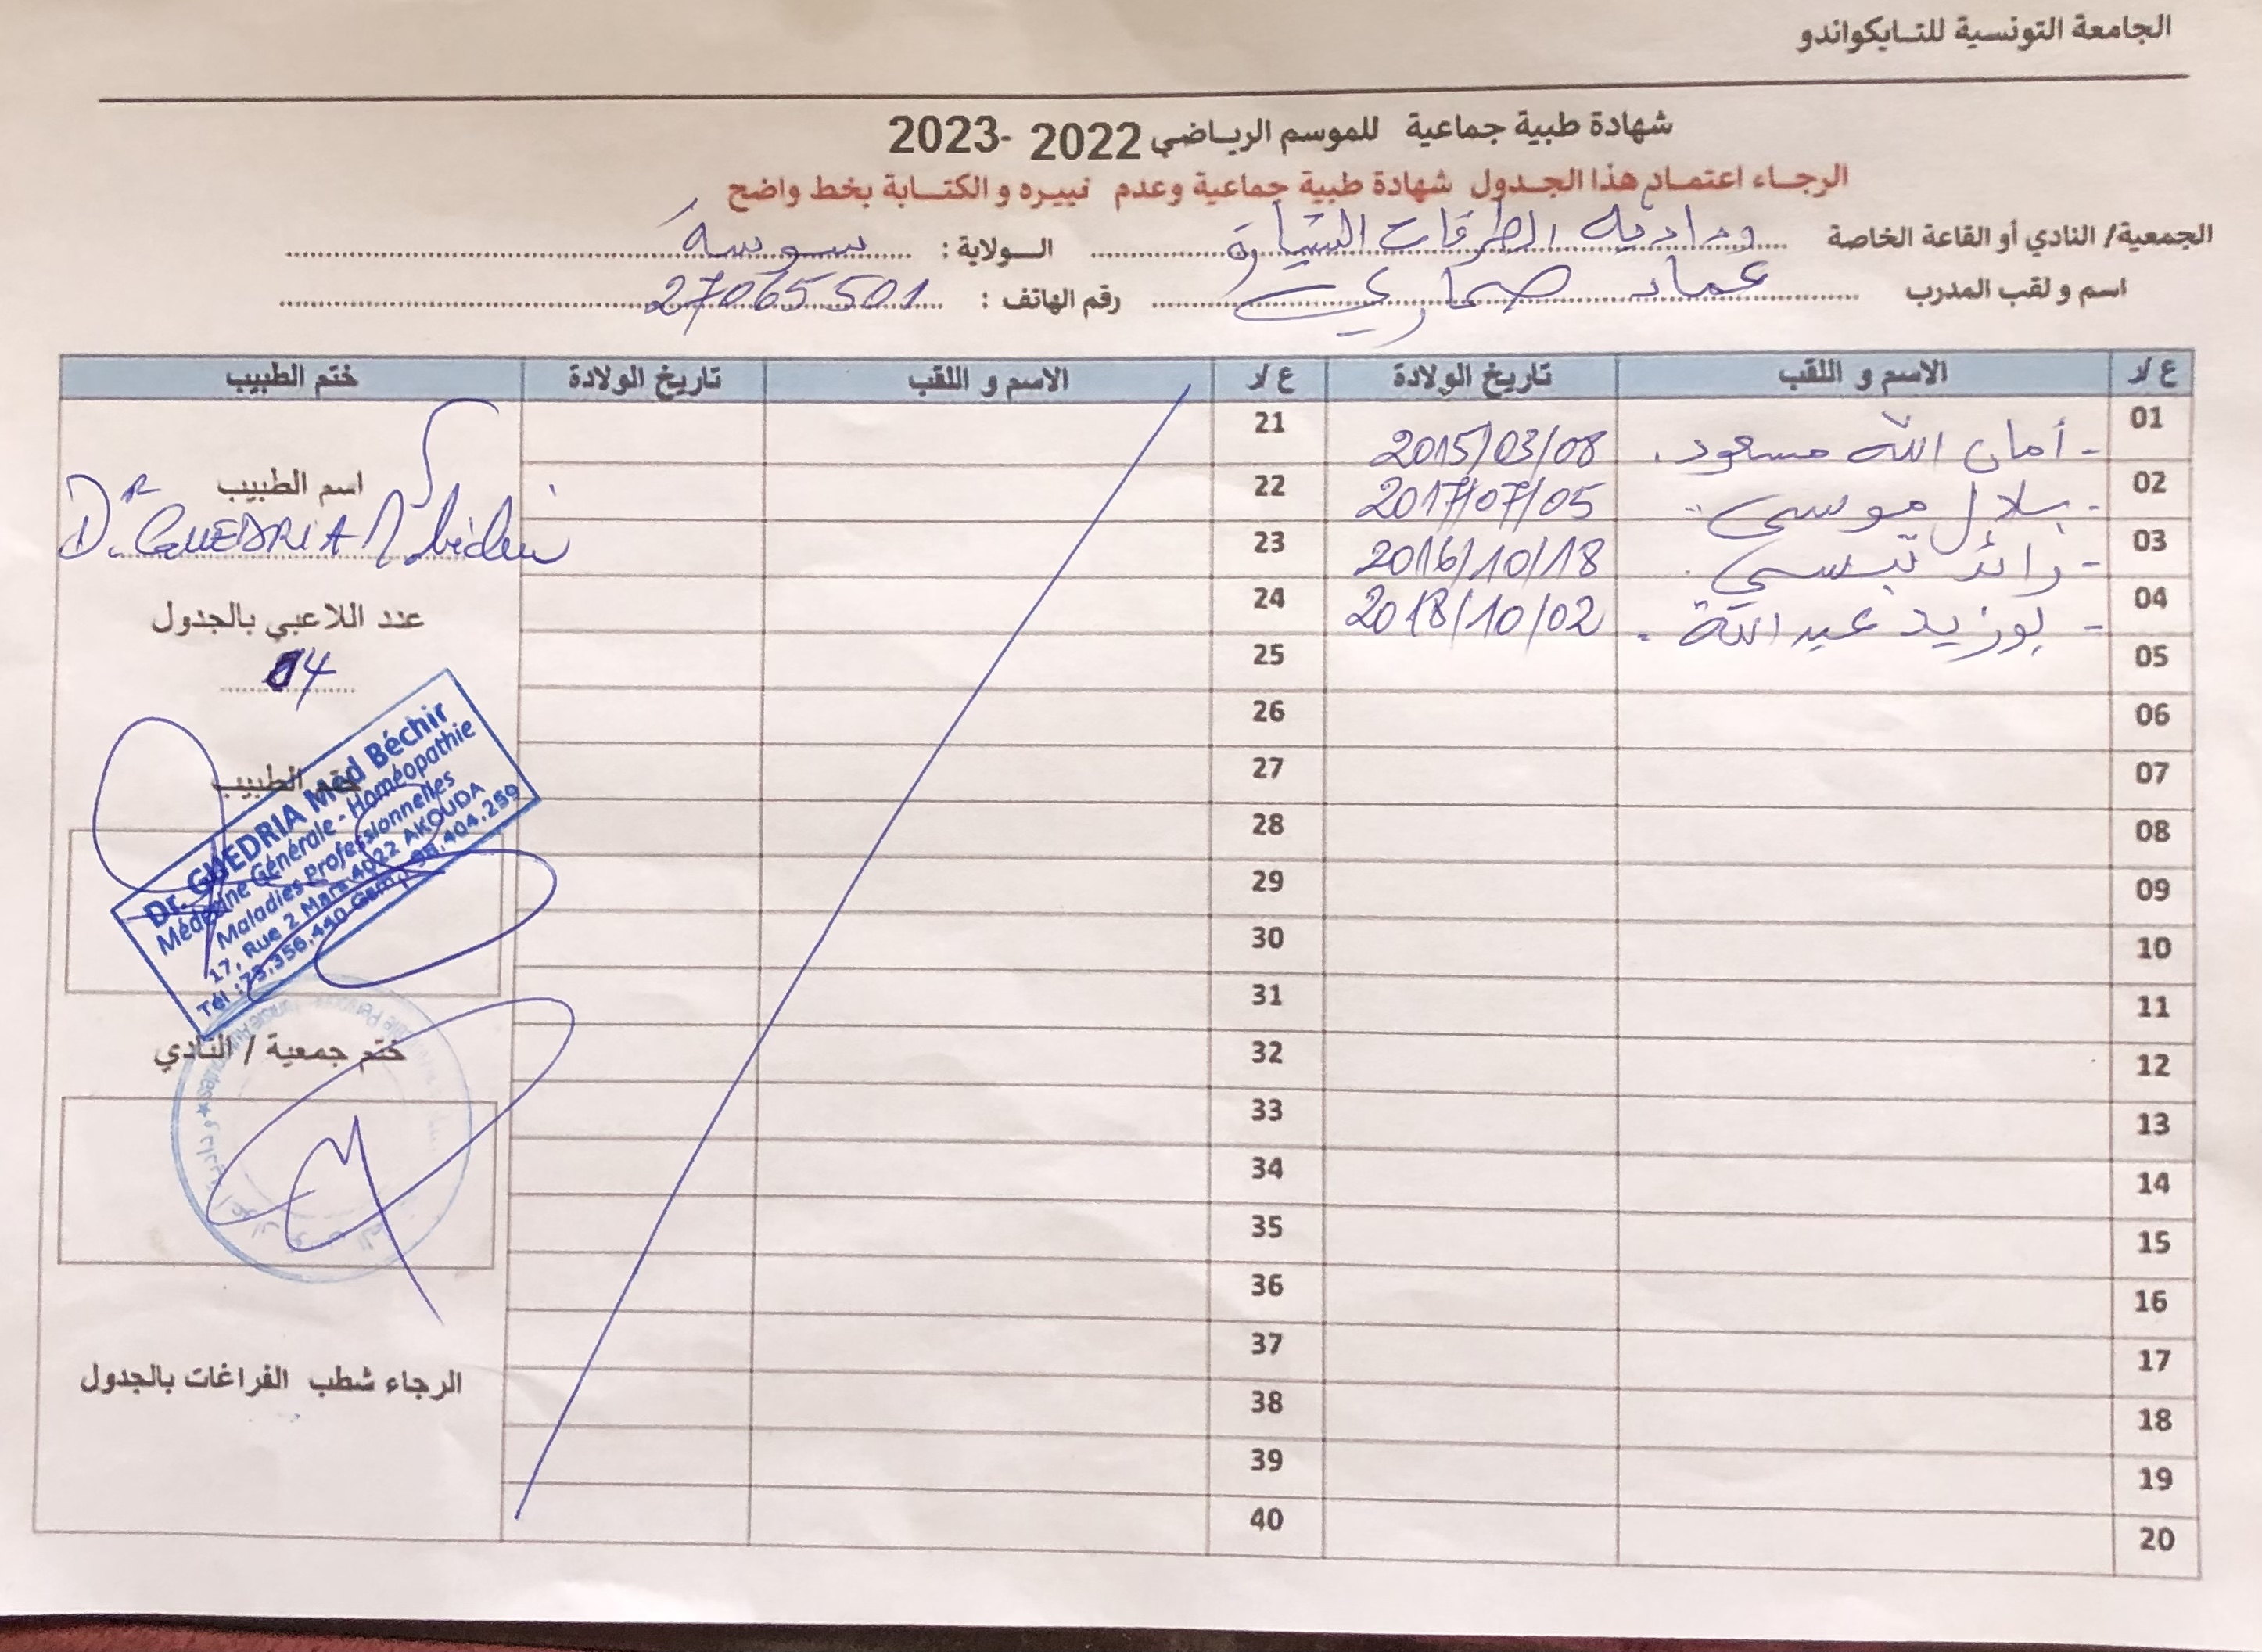 الجامعة التونسية للتايكواندو
شهادة طبية جماعية للموسم الرياضي 2022 -2023
الرجاء اعتماد هذا الجدول شهادة طبية جماعية وعدم تغييره و الكتابة بخط واضح
الجمعية/ النادي أو القاعة الخاصة ودادية الطرقات السيارة الولاية : سوسة
اسم و لقب المدرب عماد رقم الهاتف : 27065501
ع /ر الاسم و اللقب تاريخ الولادة ع /ر الاسم و اللقب تاريخ الولادة ختم الطبيب
01 - أمان الله مسعود . 2015/03/08 21
02 - بلال موسى 2017/07/05 22
03 - رائد تبسي 2016/10/18 23
04 - بوزيد عبد الله . 2018/10/02 24
05 25
06 26
07 27
08 28
09 29
10 30
11 31
12 32
13 33
14 34
15 35
16 36
17 37
18 38
19 39
20 40
اسم الطبيب
Dr GUEDRIA M. Béchir
عدد اللاعبي بالجدول
04
ختم الطبيب
Dr. GUEDRIA Med Béchir
Médecine Générale - Homéopathie
Maladies Professionnelles
17, Rue 2 Mars 4022 AKOUDA
Tél :73.356.440 Gsm : 98.404.259
ختم جمعية / النادي
الرجاء شطب الفراغات بالجدول